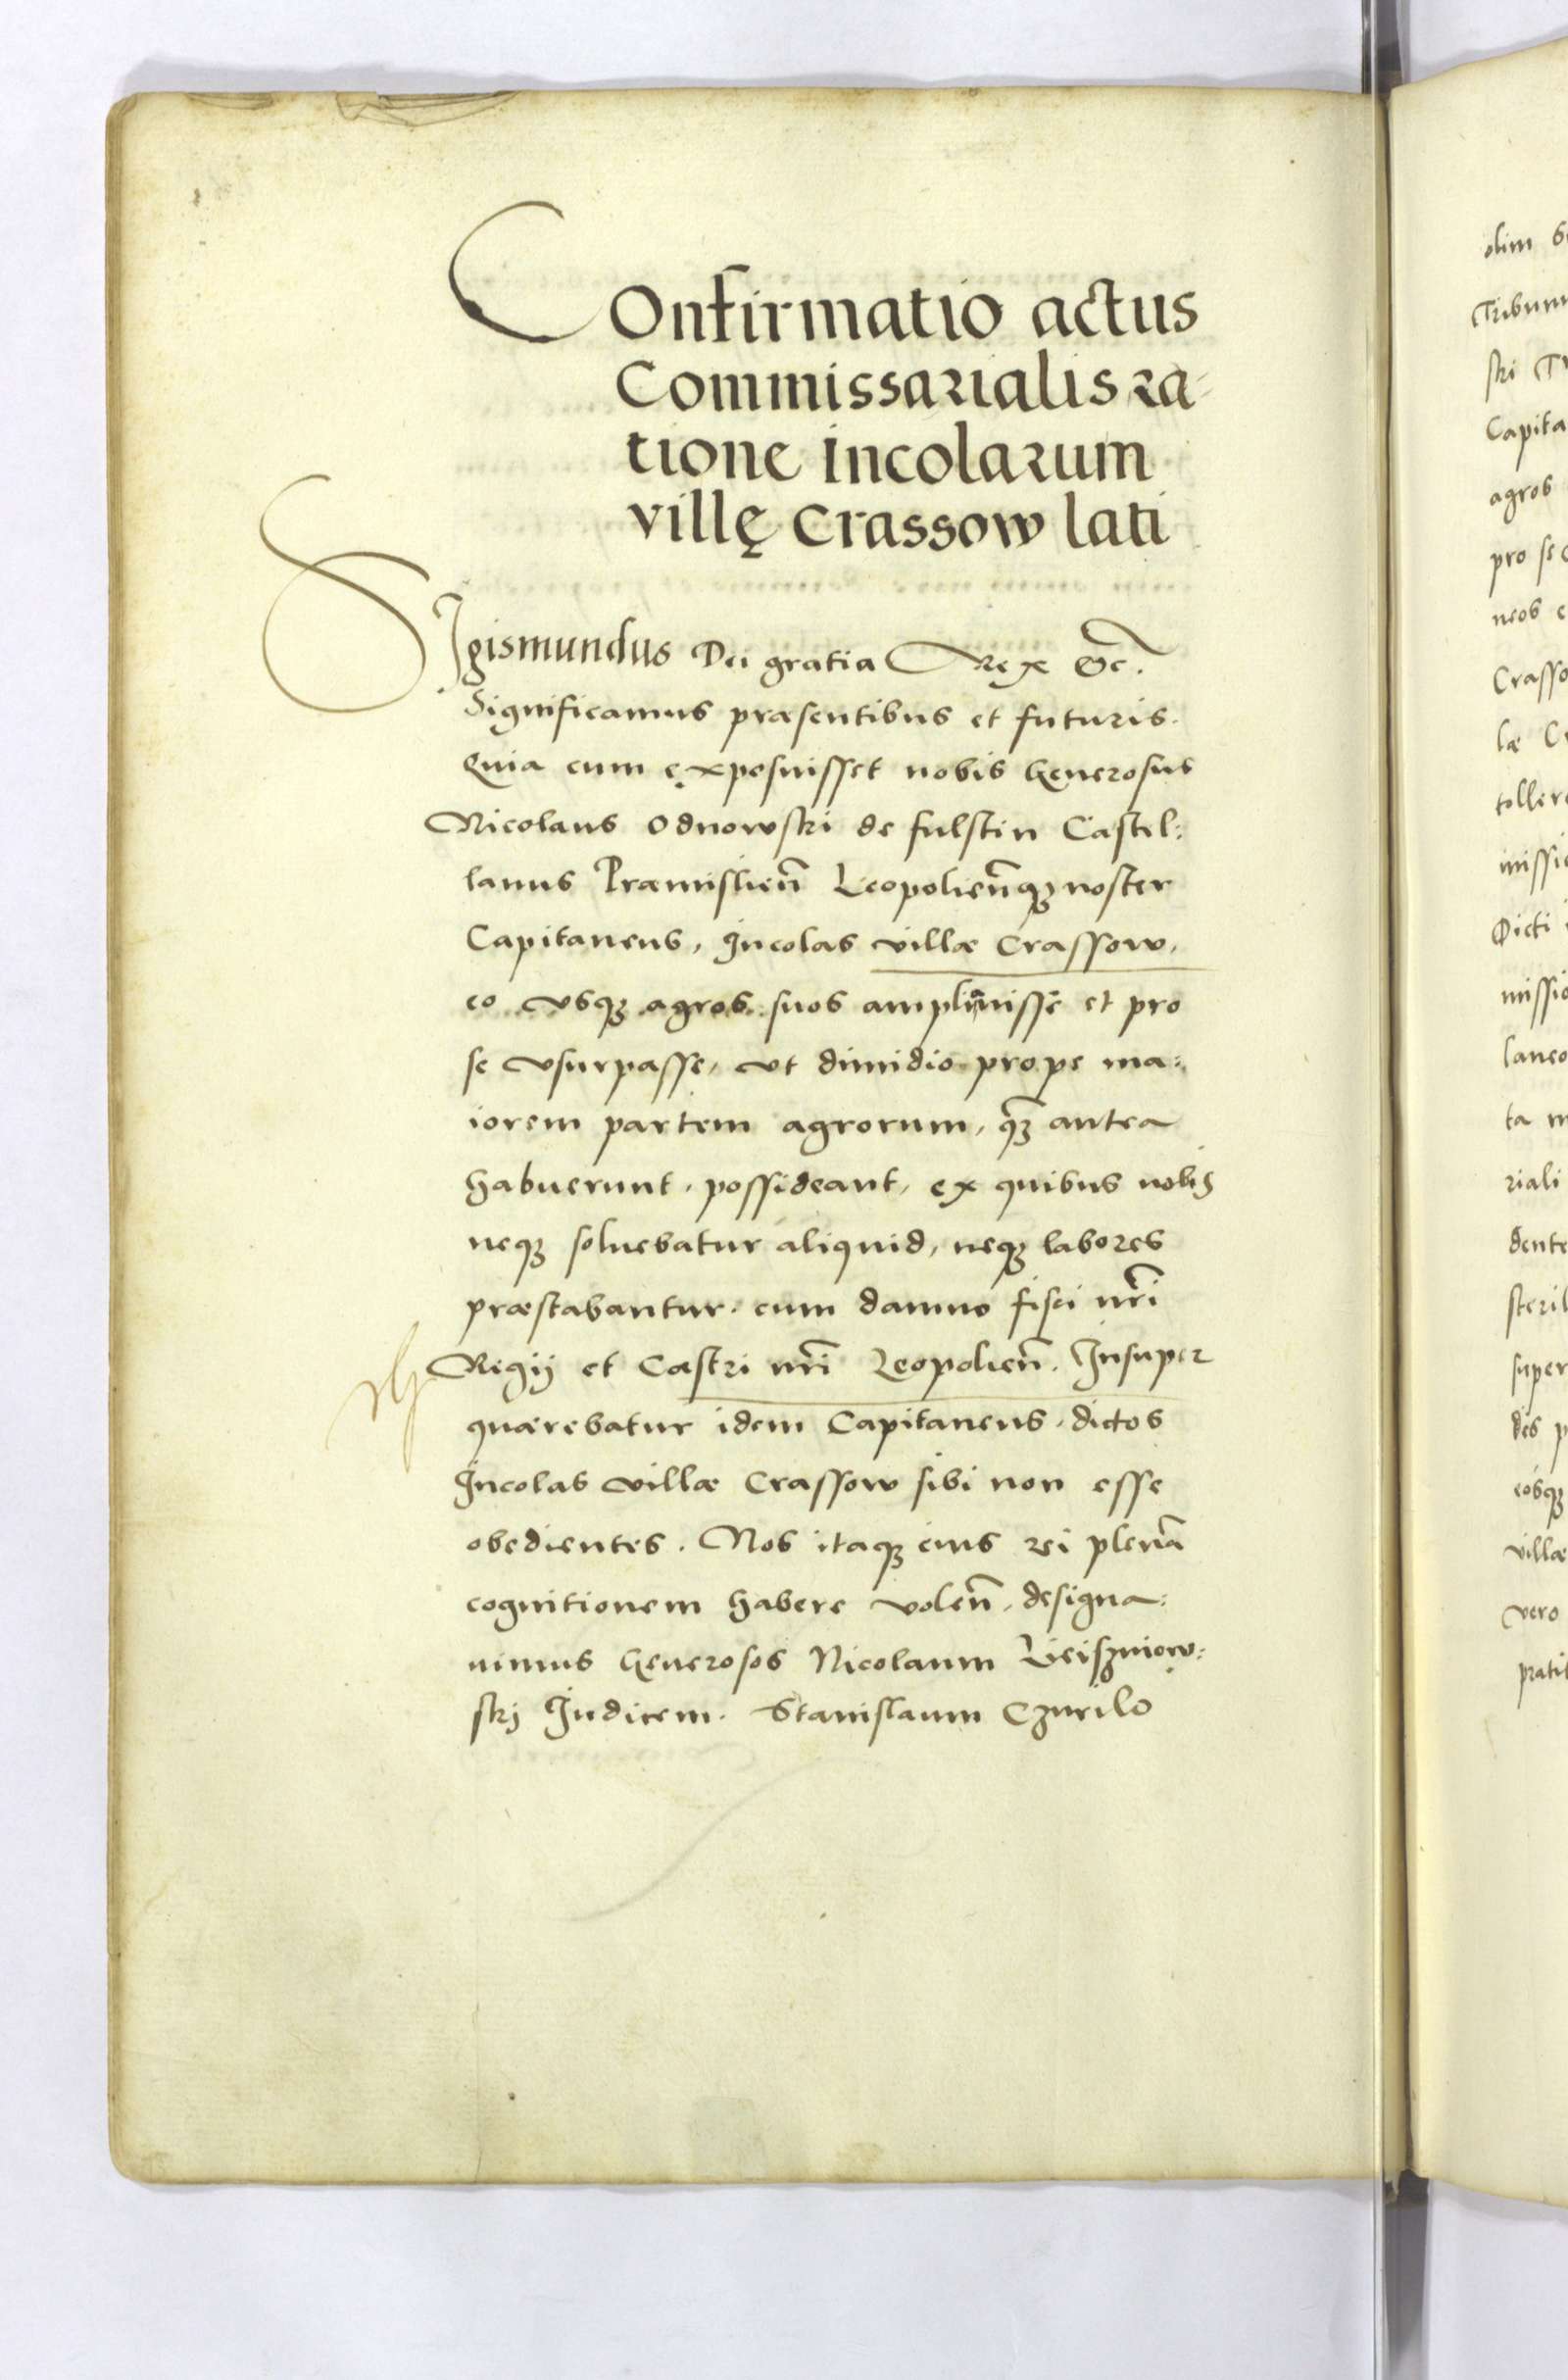 COnfirmatio actus
Commissarialis ra-
tione incolarum
villę Crassow lati
SIgismundus Dei gratia Rex &c̃.
Significamus præsentibus et futuris.
Quia cum exposuisset nobis Generosus
Nicolaus Odnowski de fulstin Castel:
lanus Præmislień Leopolieñqꝫ noster
Capitaneus, Incolas villæ Crassow,
eo vsqꝫ agros suos ampliauisse et pro
se vsurpasse, vt dimidio prope ma:
iorem partem agrorum, qꝫ̃ antea
habuerunt, possideant, ex quibus nobis
neqꝫ soluebatur aliquid, neqꝫ labores
præstabantur, cum damno fisci nr̃i
Regij et Castri nr̃i Leopolień. Insuper
quærebatur idem Capitaneus, dictos
Incolas villæ Crassow sibi non esse
obedientes. Nos itaqꝫ eius rei plenã
cognitionem habere voleñ, designa:
uimus Generosos Nicolaum Lieiszniow:
skj Iudicem. Stanislaum Czurilo
olim
Tribunu
ski
Capita
agros
pro se
neos
Crasso
læ
tollere
missio
Dicti
missio
laneo
ta
riali
dente
steril
super
eosqꝫ
villæ
vero